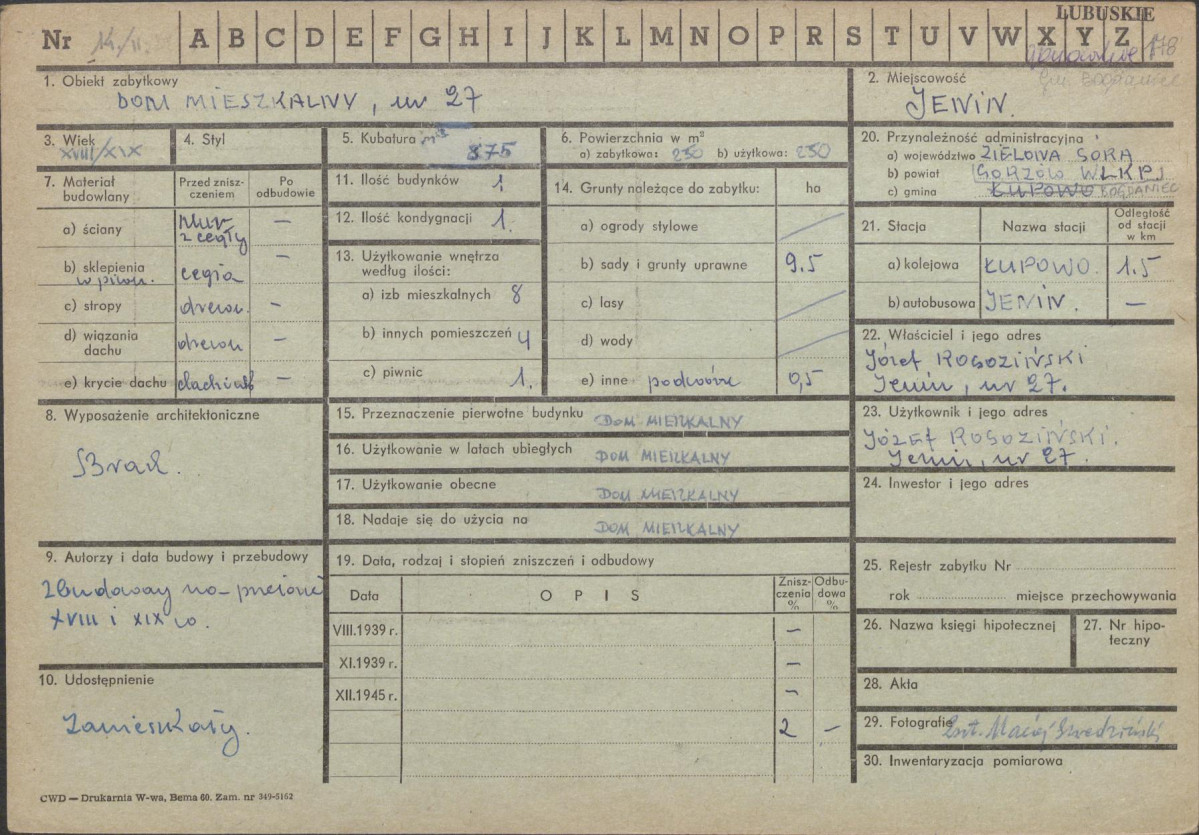 LUBUSKIE
Nr A B C D E F G H I J K L M N O P R S T U V W X Y Z
178
gm BOGDANIEC
1. Obiekt zabytkowy
DOM MIESZKALNY, nr 27
2. Miejscowość
JENIN.
3. Wiek
XVIII/XIX
4. Styl
5. Kubatura m³
875
6. Powierzchnia w m²
a) zabytkowa: 250 b) użytkowa: 250
20. Przynależność administracyjna
a) województwo ZIELONA GÓRA
b) powiat GORZÓW WLKP.
c) gmina ŁUPOWO BOGDANIEC
7. Materiał budowlany
Przed znisz-
czeniem
Po
odbudowie
a) ściany mur z cegły –
b) sklepienia w piwn. cegła –
c) stropy drewn. –
d) wiązania dachu drewn –
e) krycie dachu dachówk –
11. Ilość budynków 1
12. Ilość kondygnacji 1.
13. Użytkowanie wnętrza
według ilości:
a) izb mieszkalnych 8
b) innych pomieszczeń 4
c) piwnic 1.
14. Grunty należące do zabytku: ha
a) ogrody stylowe
b) sady i grunty uprawne 9.5
c) lasy
d) wody
e) inne podwórze 0,5
21. Stacja Nazwa stacji Odległość od stacji w km
a) kolejowa ŁUPOWO. 1.5
b) autobusowa JENIN. –
22. Właściciel i jego adres
Józef ROGOZIŃSKI
Jenin, nr 27.
8. Wyposażenie architektoniczne
Brak.
15. Przeznaczenie pierwotne budynku DOM MIESZKALNY
16. Użytkowanie w latach ubiegłych DOM MIESZKALNY
17. Użytkowanie obecne DOM MIESZKALNY
18. Nadaje się do użycia na DOM MIESZKALNY
23. Użytkownik i jego adres
JÓZEF ROGOZIŃSKI.
Jenin, nr 27.
24. Inwestor i jego adres
9. Autorzy i data budowy i przebudowy
zbudowany na przełomie
XVIII i XIX w.
19. Data, rodzaj i stopień zniszczeń i odbudowy
Data OPIS Znisz-
czenia
% Odbu-
dowa
%
VIII.1939 r. –
XI.1939 r. –
XII.1945 r. –
2 –
25. Rejestr zabytku Nr
rok miejsce przechowywania
26. Nazwa księgi hipotecznej
27. Nr hipo-
teczny
10. Udostępnienie
Zamieszkały.
28. Akta
29. Fotografie
30. Inwentaryzacja pomiarowa
CWD — Drukarnia W-wa, Bema 60. Zam. nr 349-5162